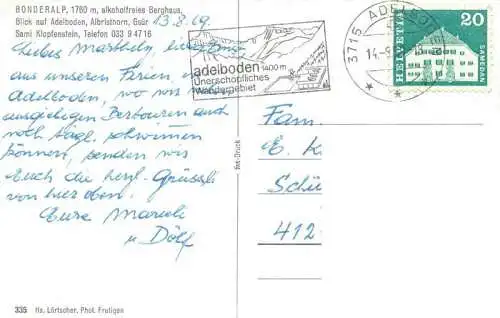 BONDERALP, 1760 m, alkoholfreies Berghaus,
Blick auf Adelboden, Albristhorn, Gsür
Sami Klopfenstein, Telefon 033 9 4716
13.8.69
aus unseren Ferien in
Adelboden, wo wir
ausgiebigen Bergtouren auch
noch tägl. schwimmen
können, senden wir
Euch die herzl. Grüessli
von hier oben.
Eure
u Dölf
adelboden 1400 m
Unerschöpfliches
Wandergebiet
3715 ADELBODEN
HELVETIA
20
SAMEDAN
Fam.
E. K
Schü
412
frei-Druck
335 Hs. Lörtscher, Phot. Frutigen